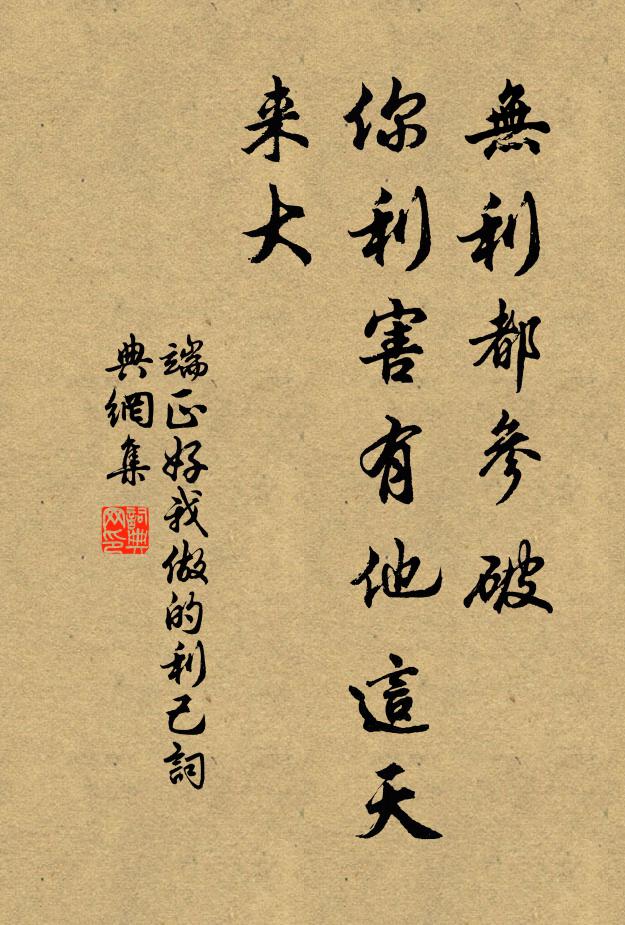 無利都參破
你利害有他這天
来大
端正好我做的利己詞
典網集
詞典
网印